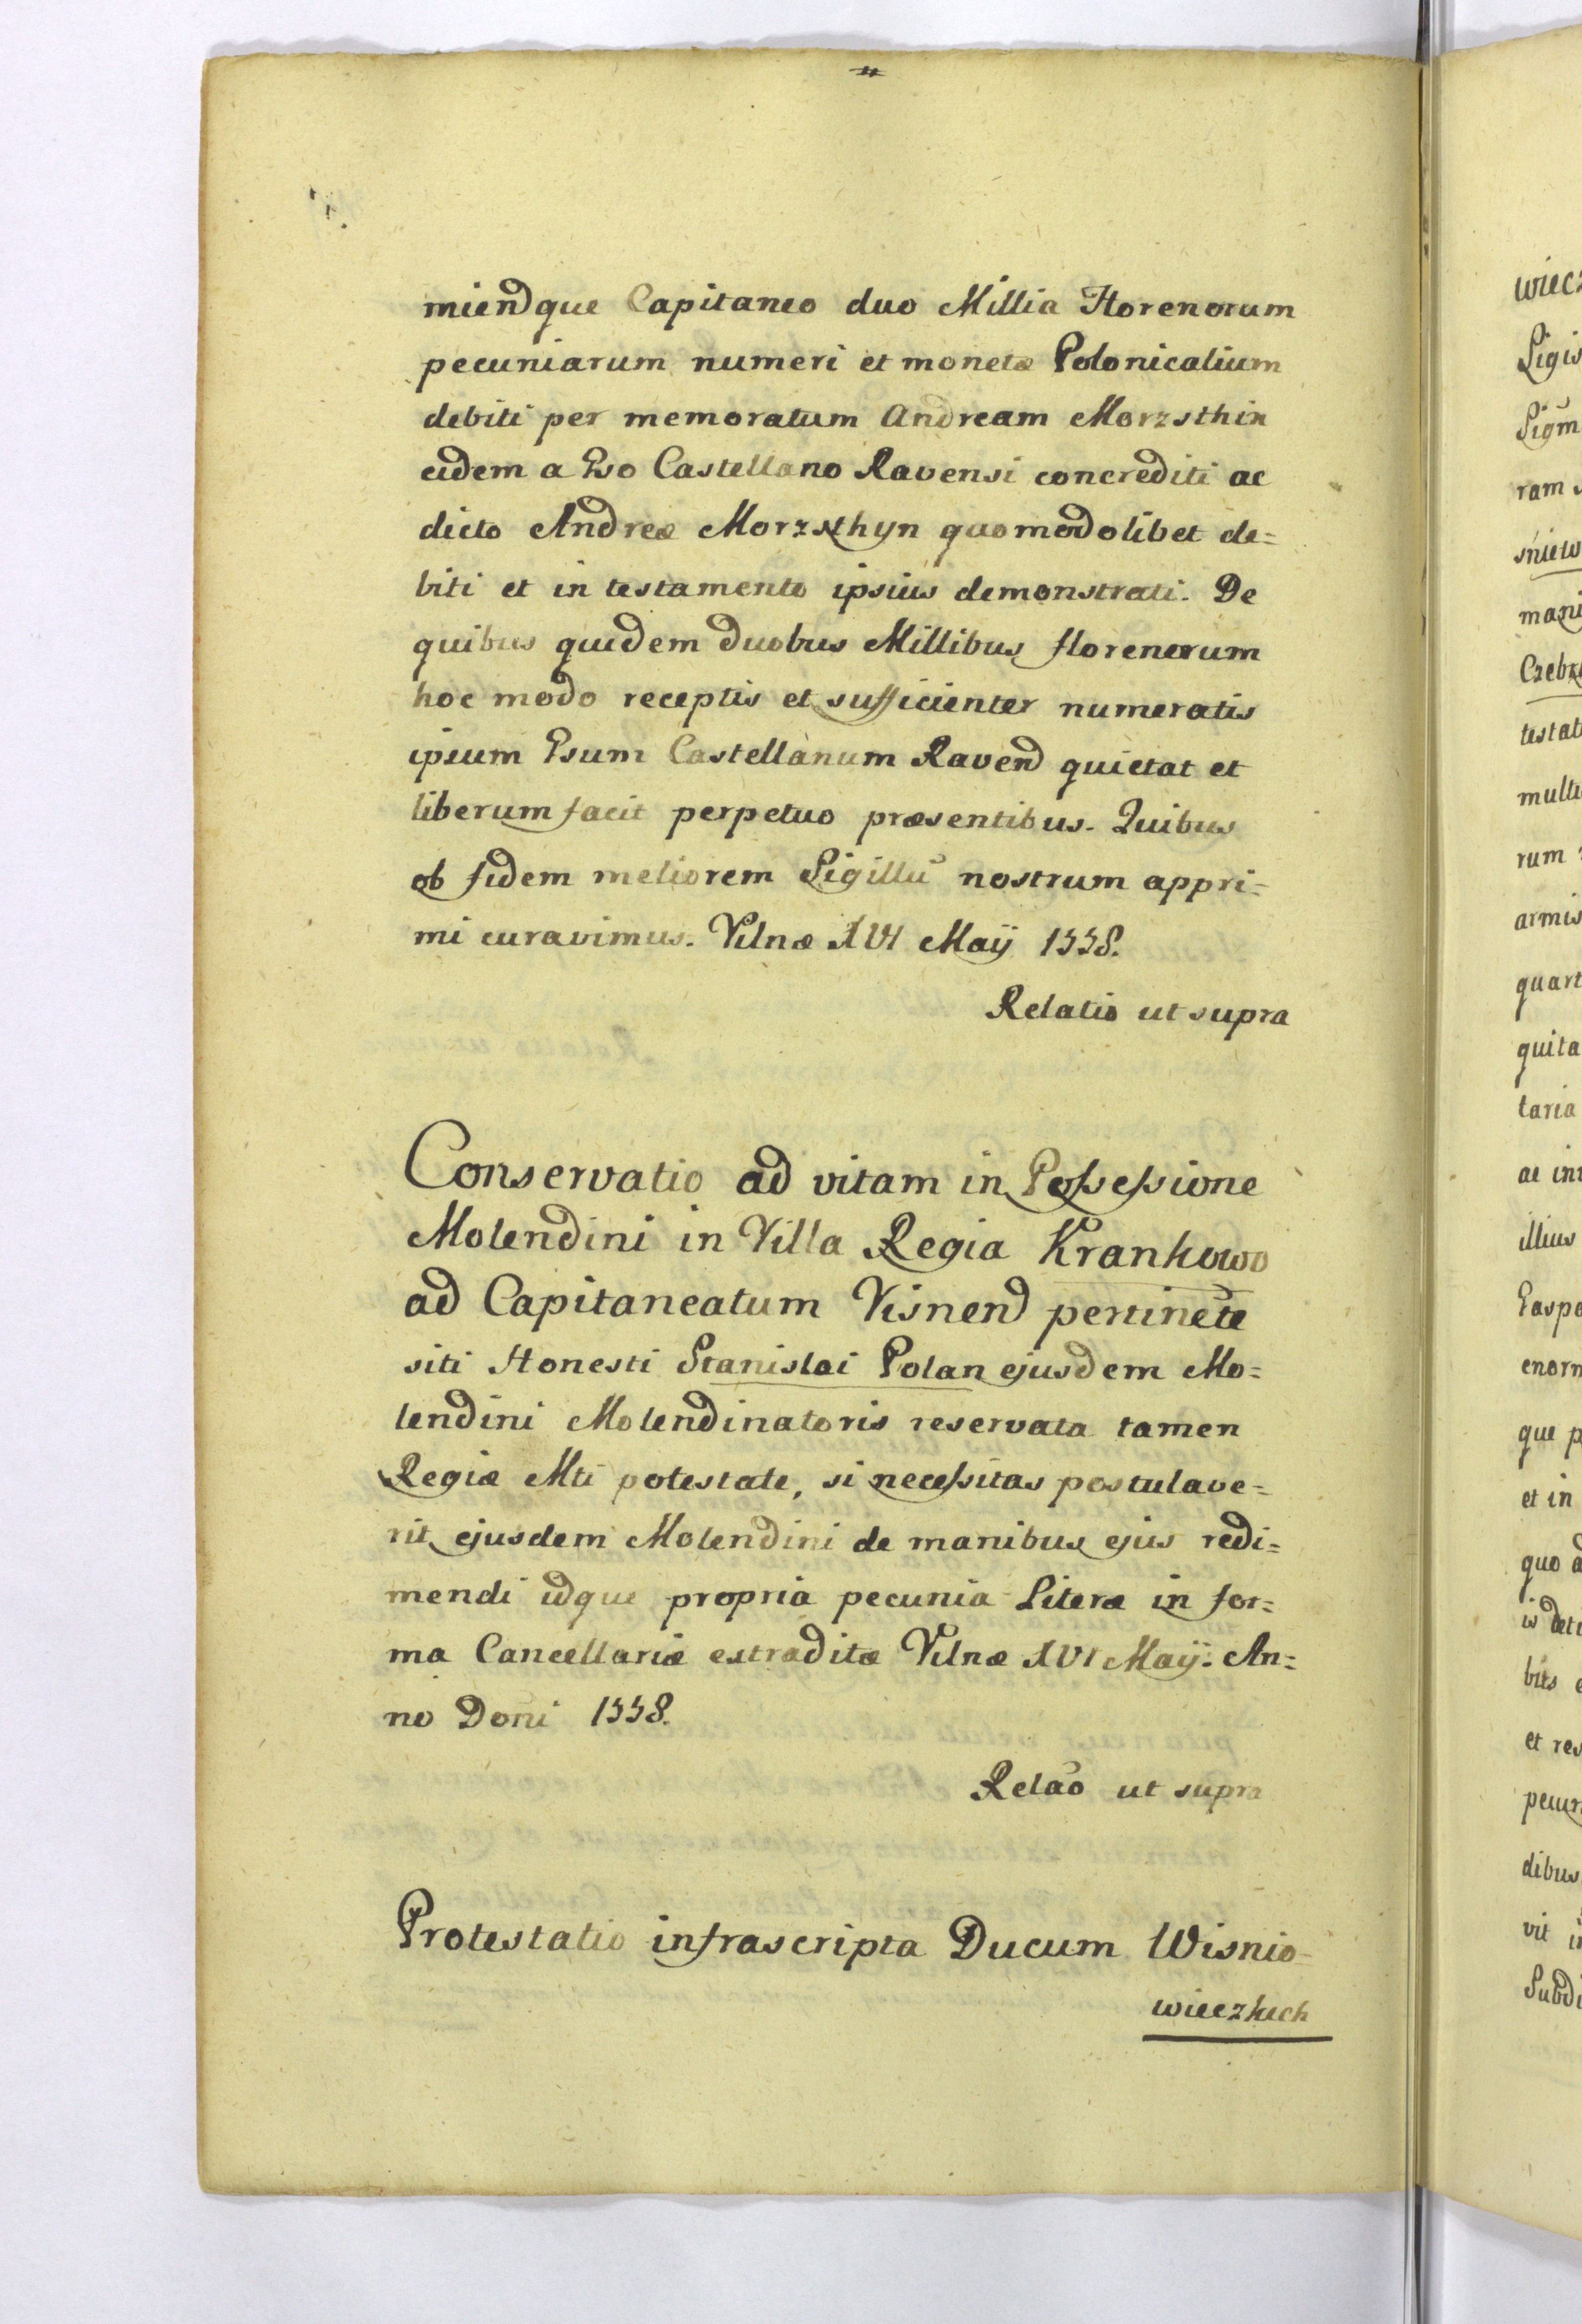 miend que Capitaneo duo Millia Florenorum
pecuniarum numeri et monetæ Polonicalium
debiti per memoratum Andream Morzsthin
eidem a Pso Castellano Ravensi concrediti ac
dicto Andreæ Morzsthyn quomodolibet de=
biti et in testamento ipsius demonstrati. De
quibus quidem duobus Millibus florenorum
hoc modo receptis et sufficienter numeratis
ipsum Psum Castellanum Ravend quietat et
liberum facit perpetuo præsentibus. Quibus
ob fidem meliorem Sigillū nostrum appri=
mi curavimus. Vilnæ XVI Maij 1558.
Relatio ut supra
Conservatio ad vitam in Possessione
Molendini in Villa Regia Krankowo
ad Capitaneatum Visnend pertinēte
siti Honesti Stanislai Polan ejusdem Mo=
lendini Molendinatoris reservata tamen
Regiæ Mti potestate, si necessitas postulave=
rit ejusdem Molendini de manibus ejus redi=
mendi idque propria pecunia Literæ in for=
ma Cancellariæ extraditæ Vilnæ XVI Maij. An=
no Doni 1558.
Relaõ ut supra
Protestatio infrascripta Ducum Wisnio-
wieczkich
wiecz
Sigis
Sigm
ram
sniew
mani
Czebr
testat
multi
rum
armis
quart
quita
taria
ac in
illius
Paspo
enorm
que p
et in
quo a
is deti
bits e
et res
pecun
dibus
vit i
Subdi